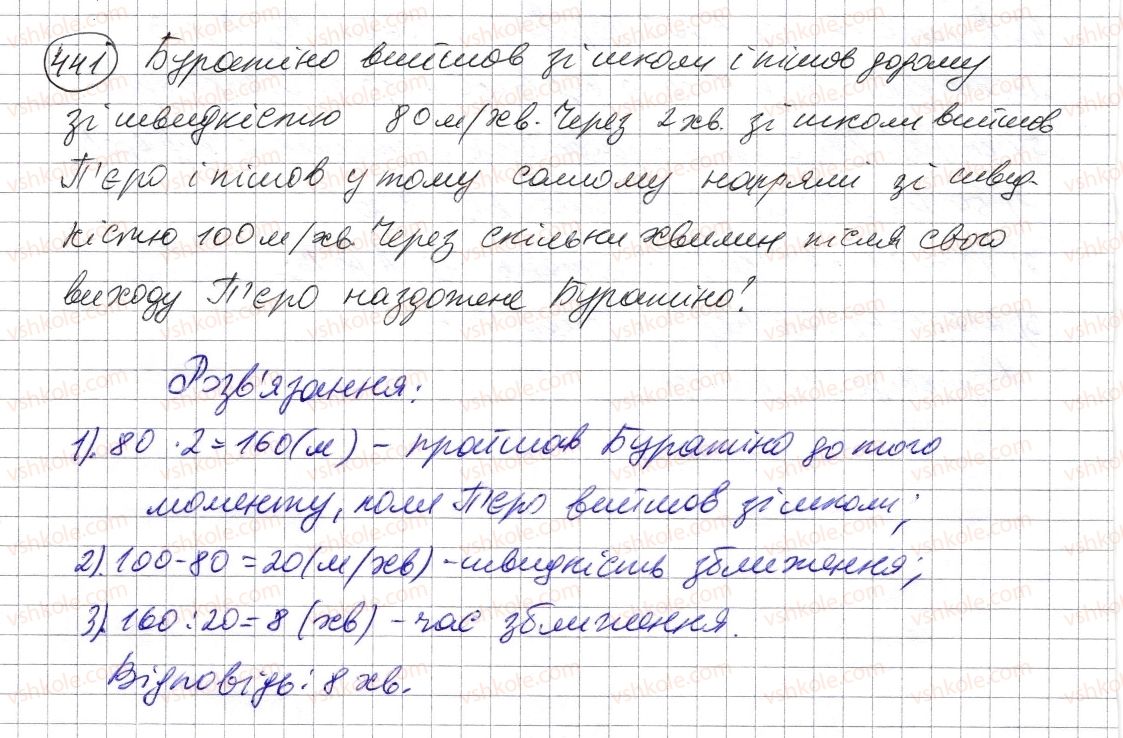 441 Буратіно вийшов зі школи і пішов додому
зі швидкістю 80 м/хв. Через 2 хв. зі школи вийшов
П'єро і пішов у тому самому напрямі зі швид-
кістю 100 м/хв. Через скільки хвилин після свого
виходу П'єро наздожене Буратіно?
Розв'язання:
1). 80 · 2 = 160 (м) - пройшов Буратіно до того
моменту, коли П'єро вийшов зі школи;
2). 100 - 80 = 20 (м/хв) - швидкість зближення;
3). 160 : 20 = 8 (хв) - час зближення.
Відповідь: 8 хв.
vshkole.com